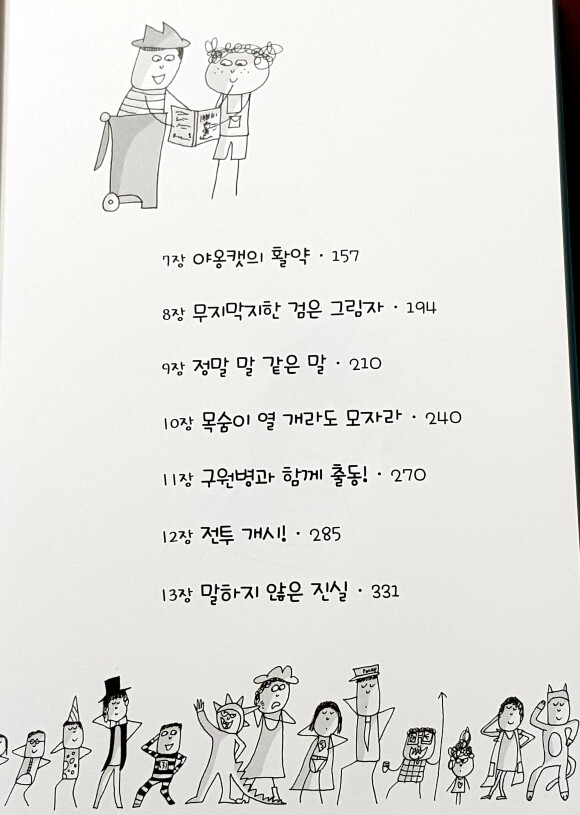 7장 야옹캣의 활약 · 157
8장 무지막지한 검은 그림자 · 194
9장 정말 말 같은 말 · 210
10장 목숨이 열 개라도 모자라 · 240
11장 구원병과 함께 출동! · 270
12장 전투 개시! · 285
13장 말하지 않은 진실 · 331